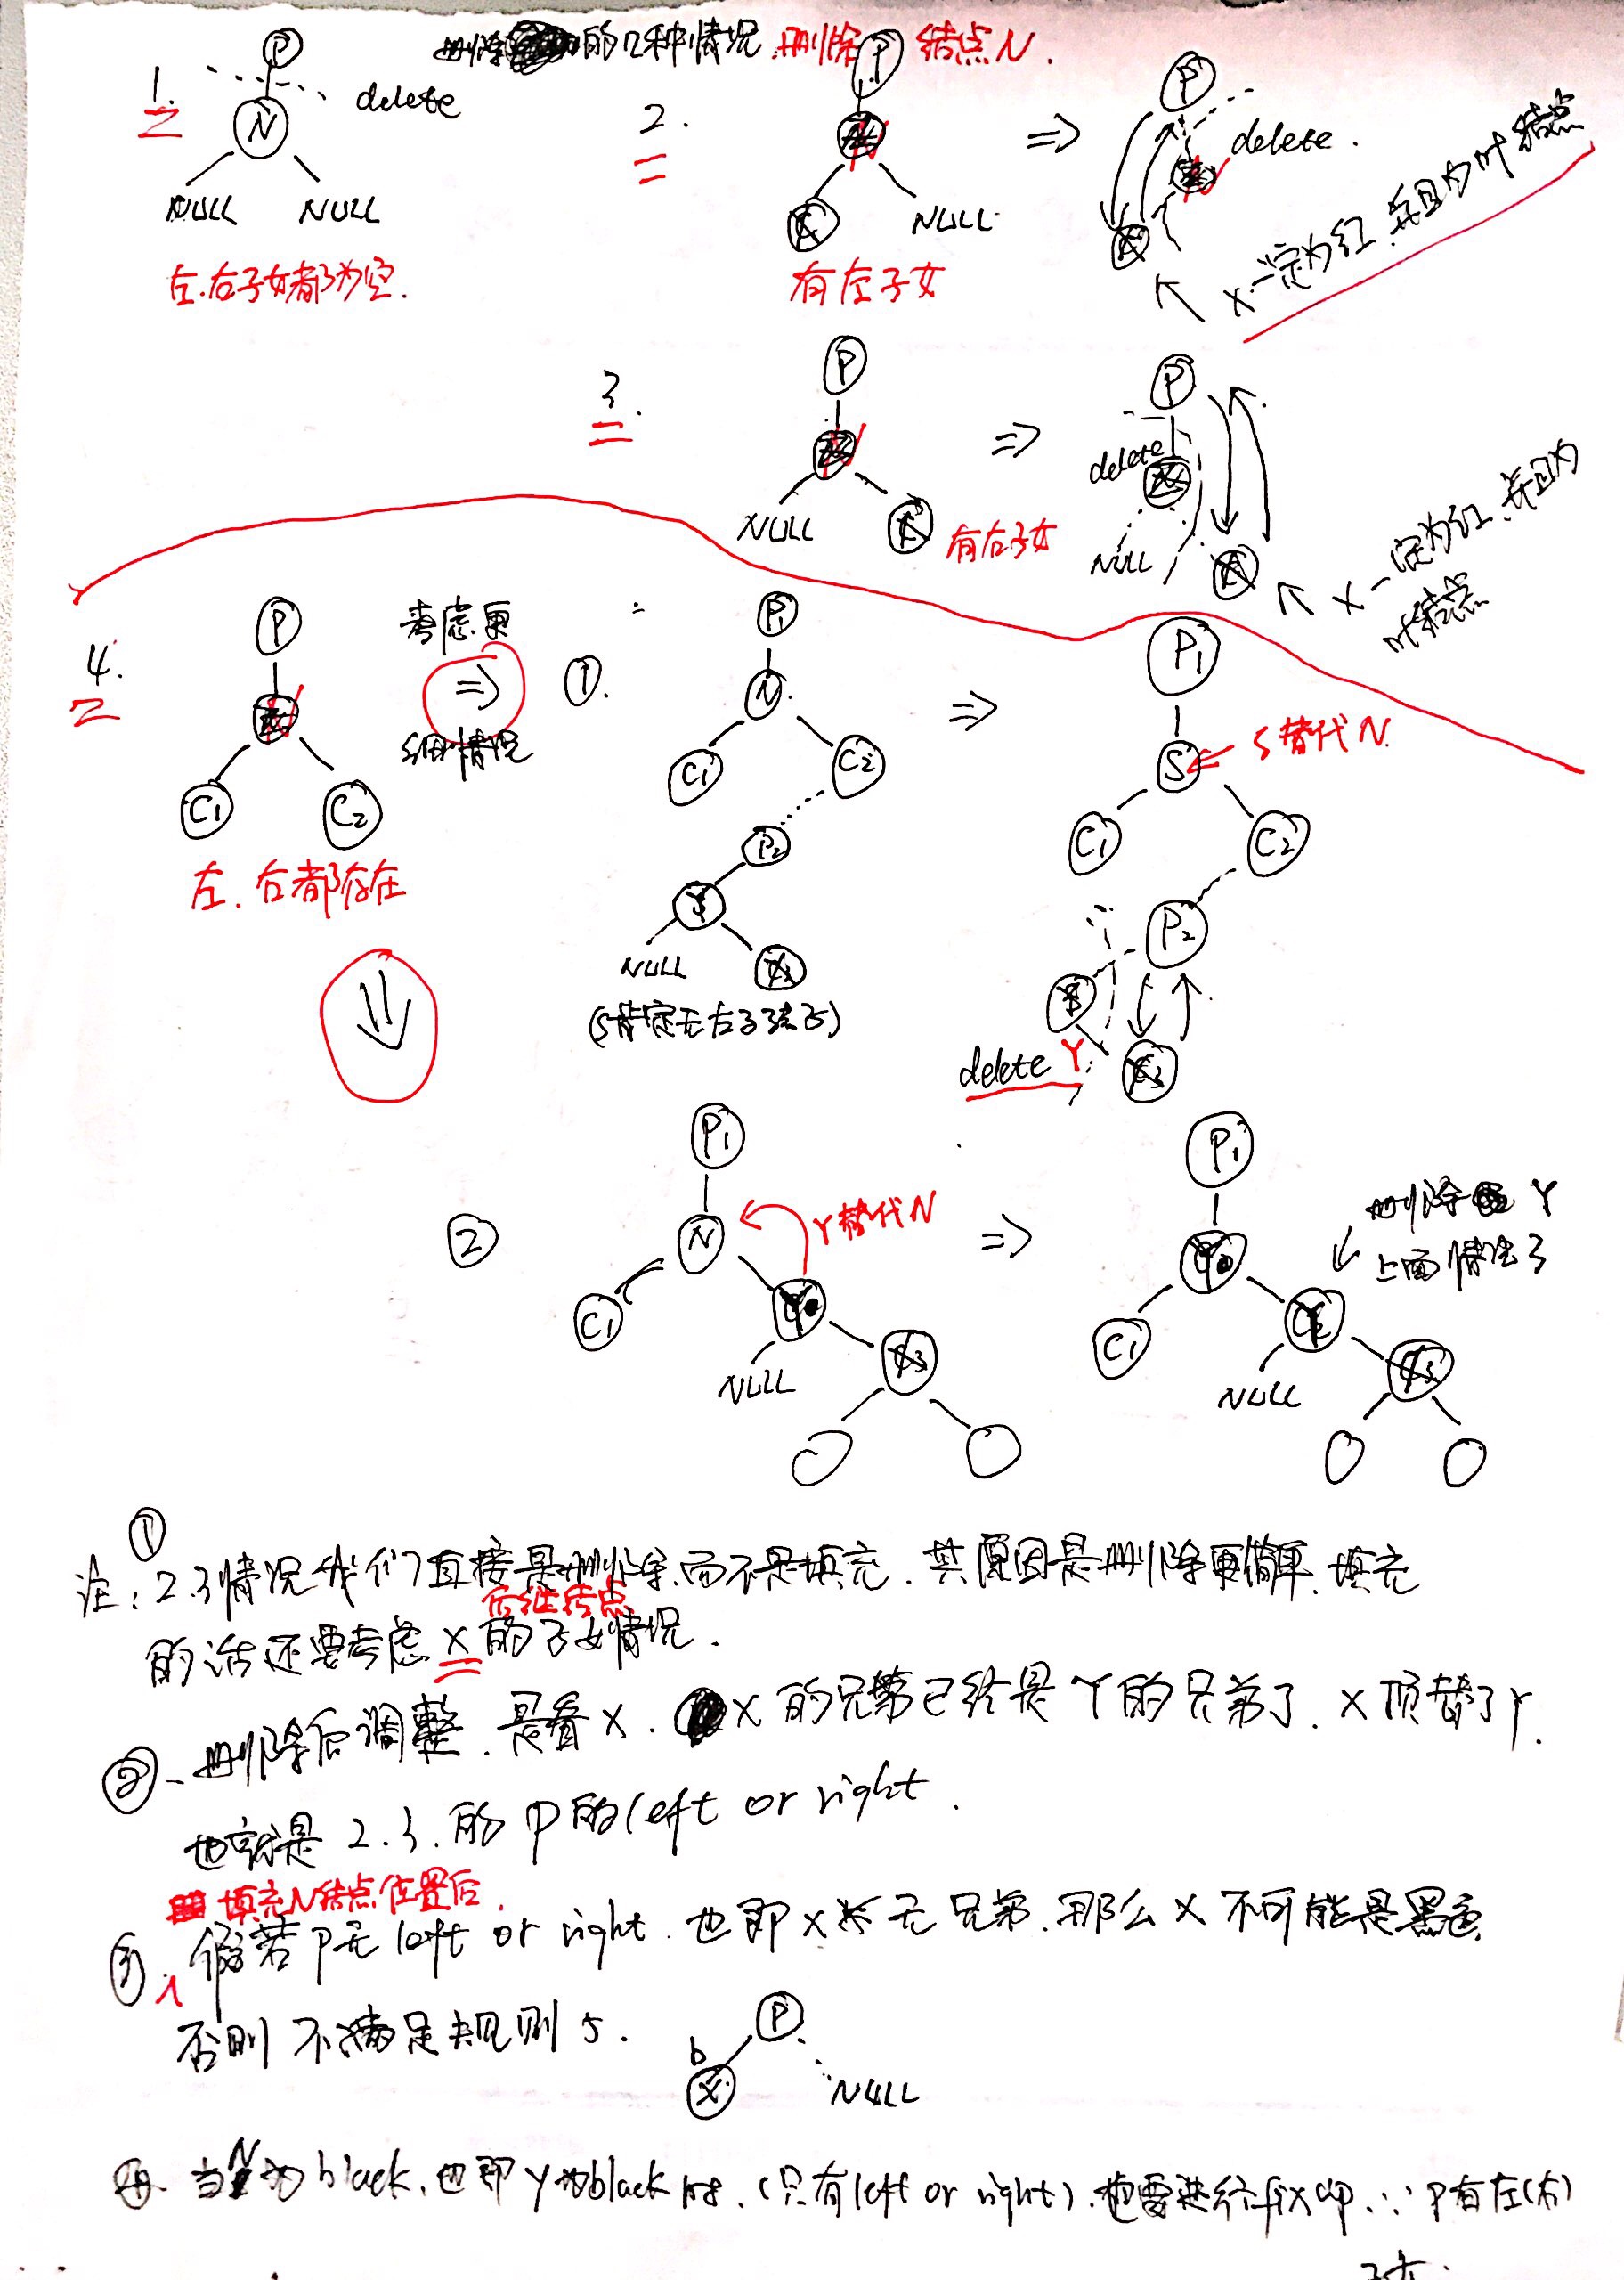 删除的几种情况 删除 结点N.
1.
P
N
delete
NULL NULL
左.右子女都为空.
2.
P
N
X
NULL
有左子女
⇒
P
delete.
N
X
X一定为红.并且为叶结点
3.
P
N
NULL
X
有右子女
⇒
P
delete
N
NULL
X
X一定为红.并且为
叶结点
4.
P
N
C1 C2
左.右都存在
考虑更
⇒
细情况
①.
P1
N
C1 C2
P2
Y
NULL X
(S肯定无左子孩子)
⇒
P1
S
S替代N.
C1 C2
P2
Y
X
delete Y
⇓
②
P1
N
Y替代N
C1 Y
NULL X
⇒
P1
Y
C1
NULL X
删除 Y
上面情况3
注: ① 2.3情况我们直接是删除.而不是填充.其原因是删除更简单.填充
后继结点
的话还要考虑X的子女情况.
②. 删除后调整.是看X. X的兄弟已经是Y的兄弟了.X顶替了Y.
也就是2.3.的P的left or right.
填充N结点位置后.
③. 假若P无left or right.也即X无兄弟.那么X不可能是黑色
否则不满足规则5.
P
b
X
NULL
④. 当N为black.也即Y为black时.(只有left or right).也要进行fixup.∵P有左(右)